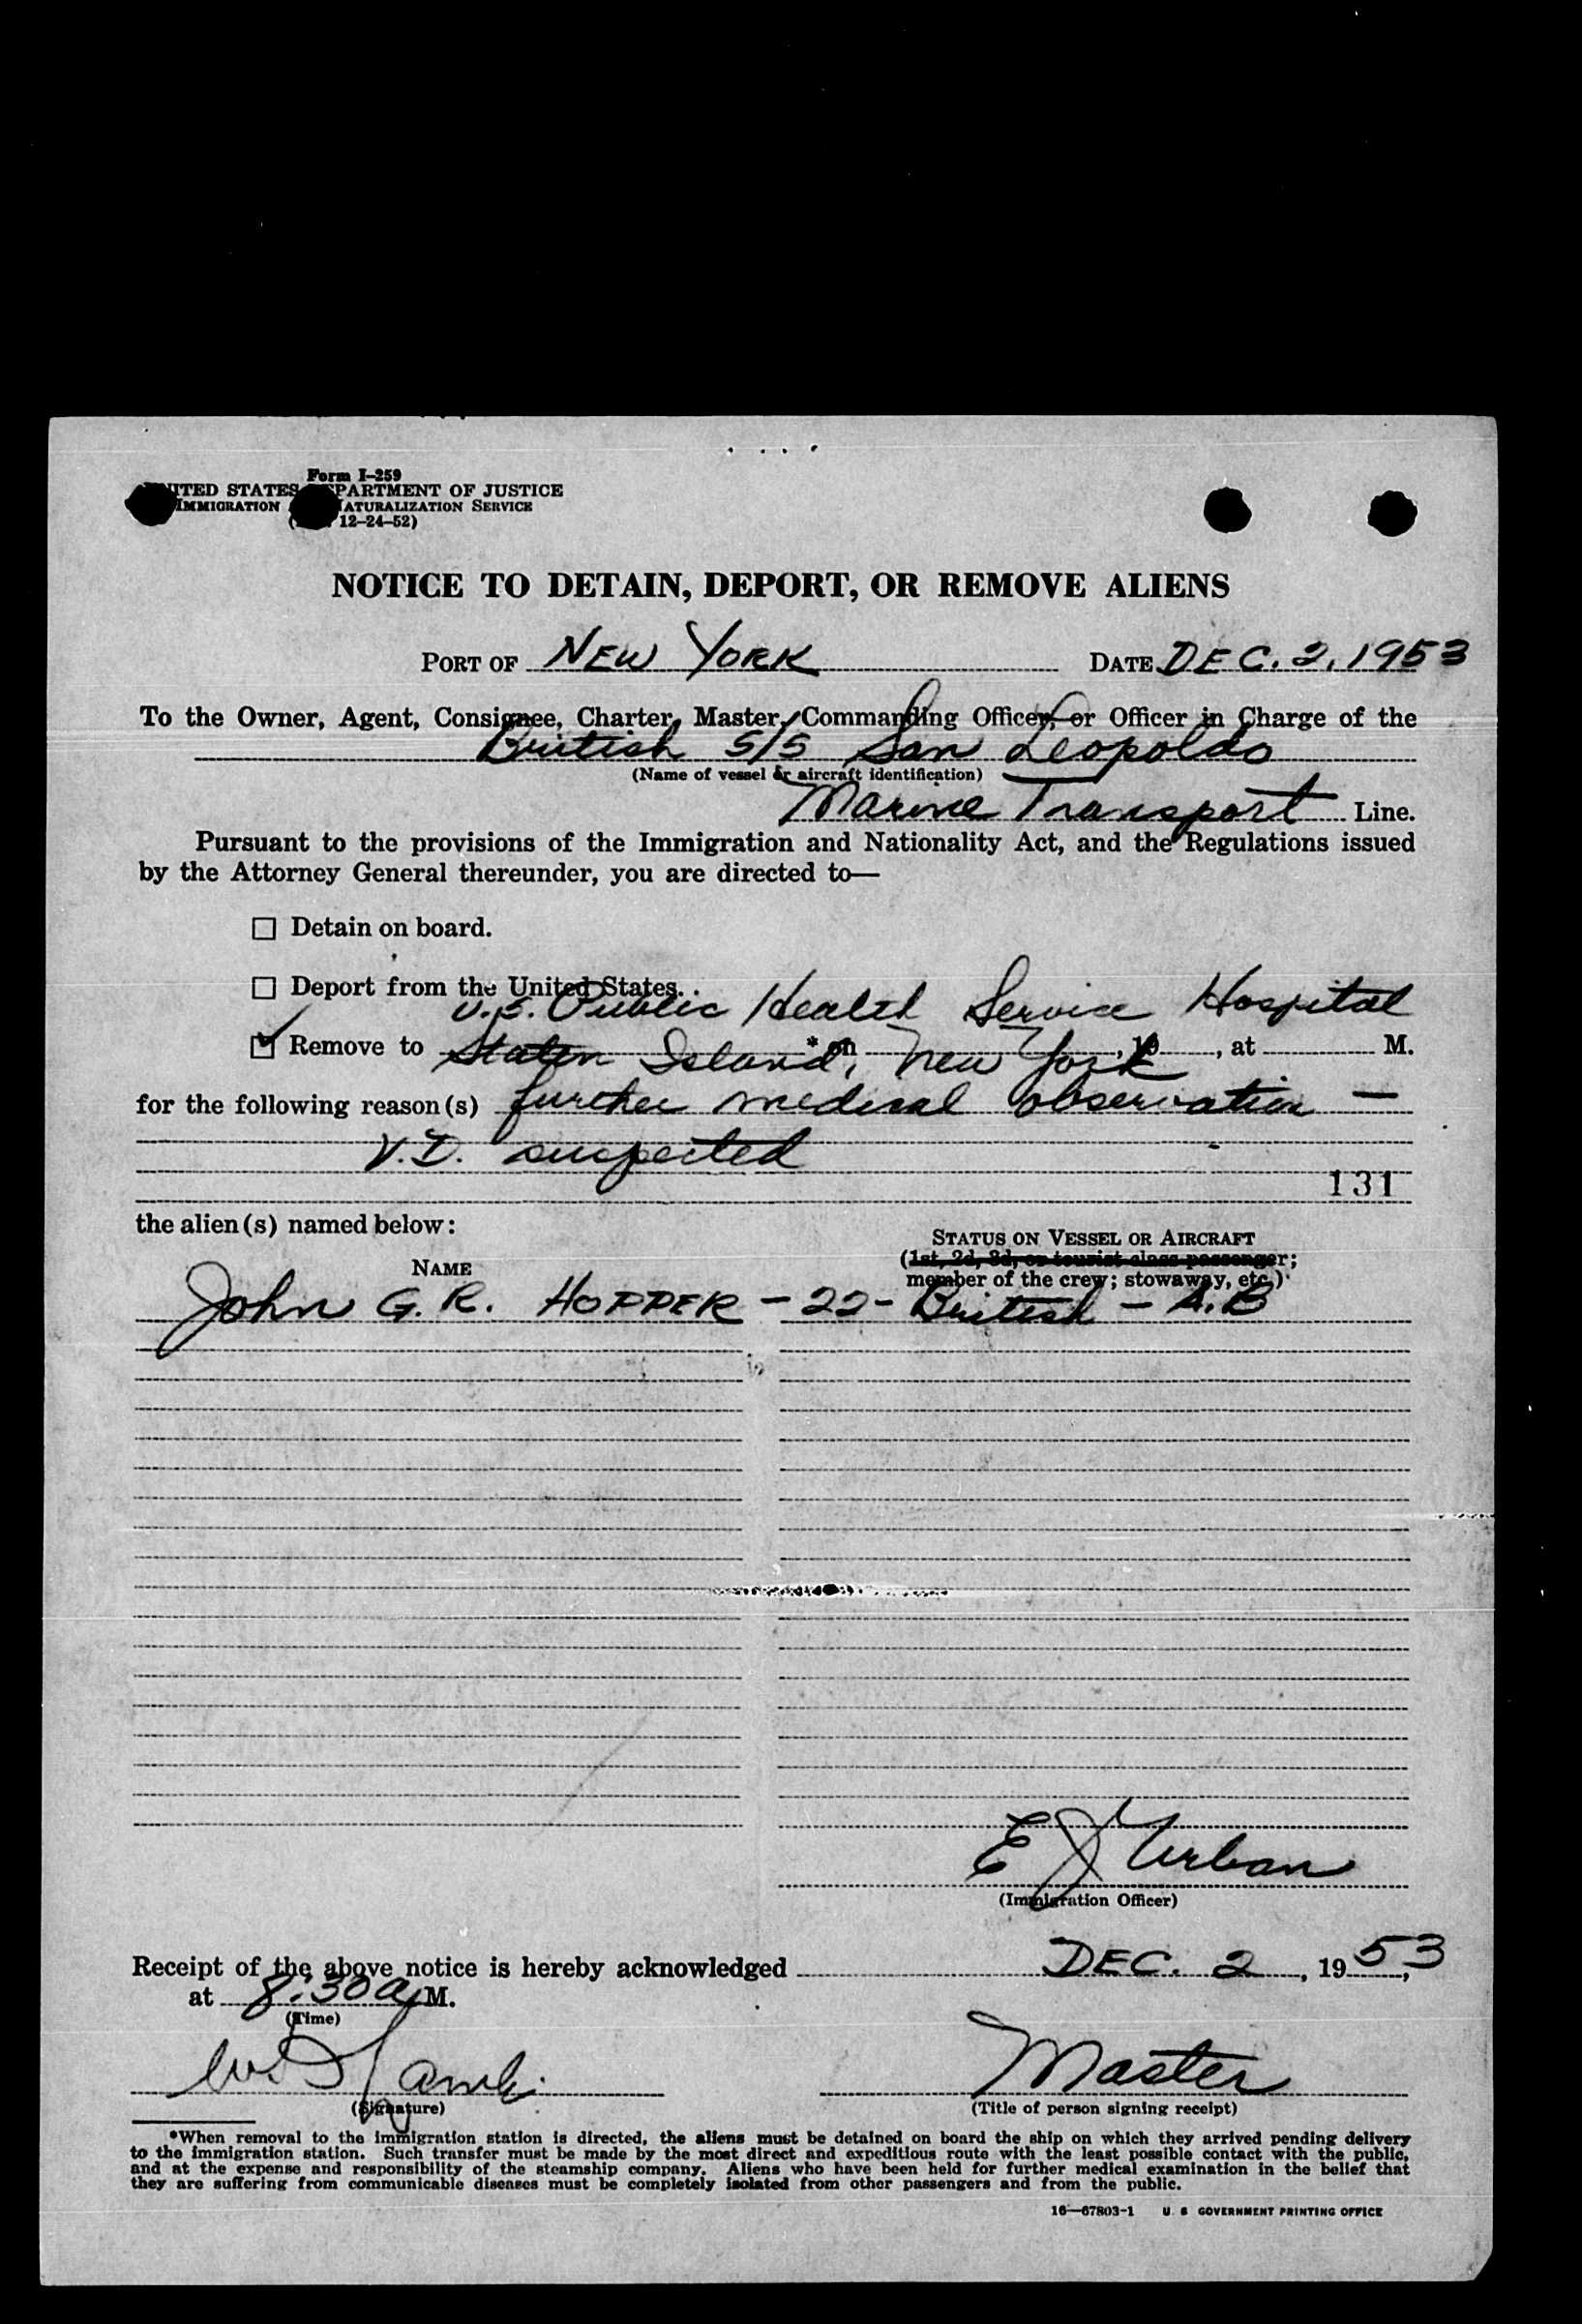 Form I-259
UNITED STATES DEPARTMENT OF JUSTICE
IMMIGRATION NATURALIZATION SERVICE
( 12-24-52)
NOTICE TO DETAIN, DEPORT, OR REMOVE ALIENS
PORT OF NEW YORK DATE DEC. 2, 1953
To the Owner, Agent, Consignee, Charter, Master, Commanding Officer, or Officer in Charge of the
British S/S San Leopoldo
(Name of vessel or aircraft identification)
Marine Transport Line.
Pursuant to the provisions of the Immigration and Nationality Act, and the Regulations issued
by the Attorney General thereunder, you are directed to—
☐ Detain on board.
☐ Deport from the United States.
U.S. Public Health Service Hospital
☑ Remove to Staten Island, New York * on , 19 , at M.
for the following reason(s) further medical observation —
V.D. suspected
131
the alien(s) named below:
STATUS ON VESSEL OR AIRCRAFT
(1st, 2d, 3d, or tourist class passenger;
NAME
member of the crew; stowaway, etc.)
John G. R. HOPPER - 22 - British - A.B
E J Urban
(Immigration Officer)
Receipt of the above notice is hereby acknowledged DEC. 2, 1953,
at 8:30 a M.
(Time)
Master
(Signature) (Title of person signing receipt)
*When removal to the immigration station is directed, the aliens must be detained on board the ship on which they arrived pending delivery
to the immigration station. Such transfer must be made by the most direct and expeditious route with the least possible contact with the public,
and at the expense and responsibility of the steamship company. Aliens who have been held for further medical examination in the belief that
they are suffering from communicable diseases must be completely isolated from other passengers and from the public.
16—67803-1 U. S GOVERNMENT PRINTING OFFICE